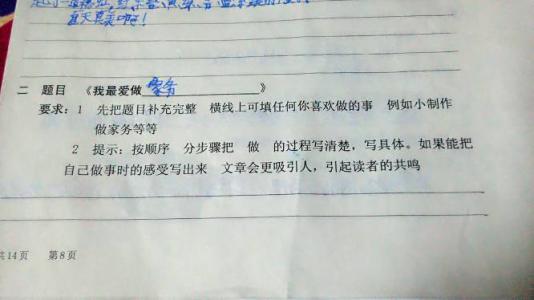 直天真啊！
二 题目 《我最爱做 家务 》
要求：1 先把题目补充完整 横线上可填任何你喜欢做的事 例如小制作
做家务等等
2 提示：按顺序 分步骤把 做 的过程写清楚，写具体。如果能把
自己做事时的感受写出来 文章会更吸引人，引起读者的共鸣
共14页 第8页